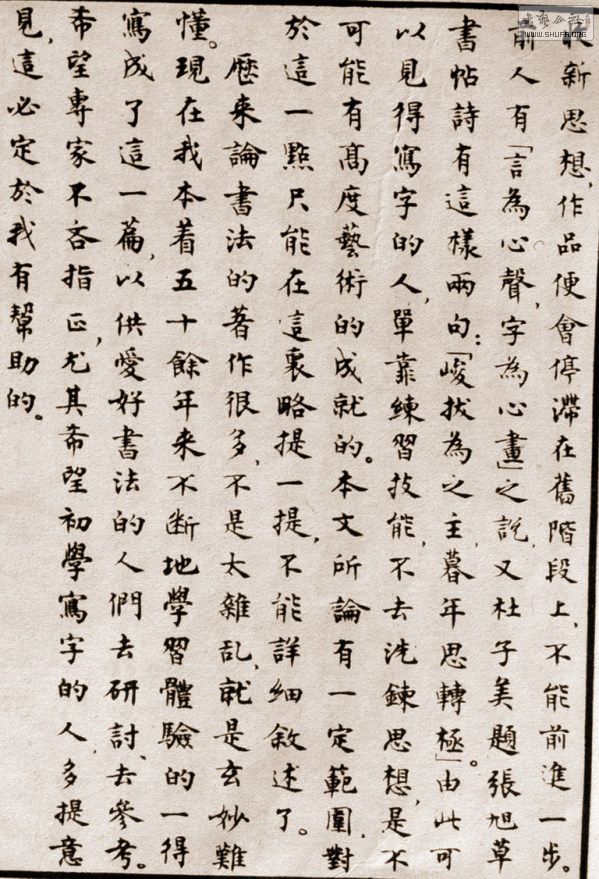 取新思想,作品便會停滯在舊階段上,不能前進一步。
前人有「言為心聲,字為心畫」之說,又杜子美題張旭草
書帖詩有這樣兩句:「峻拔為之主,暮年思轉極」。由此可
以見得寫字的人,單靠練習技能,不去洗鍊思想,是不
可能有髙度藝術的成就的。本文所論有一定範圍,對
於這一點只能在這裏略提一提,不能詳細敘述了。
歷來論書法的著作很多,不是太雜乱,就是玄妙難
懂。現在我本着五十餘年來不断地學習體驗的一得
寫成了這一篇,以供愛好書法的人們去研討、去參考。
希望專家不吝指正,尤其希望初學寫字的人,多提意
見,這必定於我有幫助的。
WWW.SHUFA.ORG